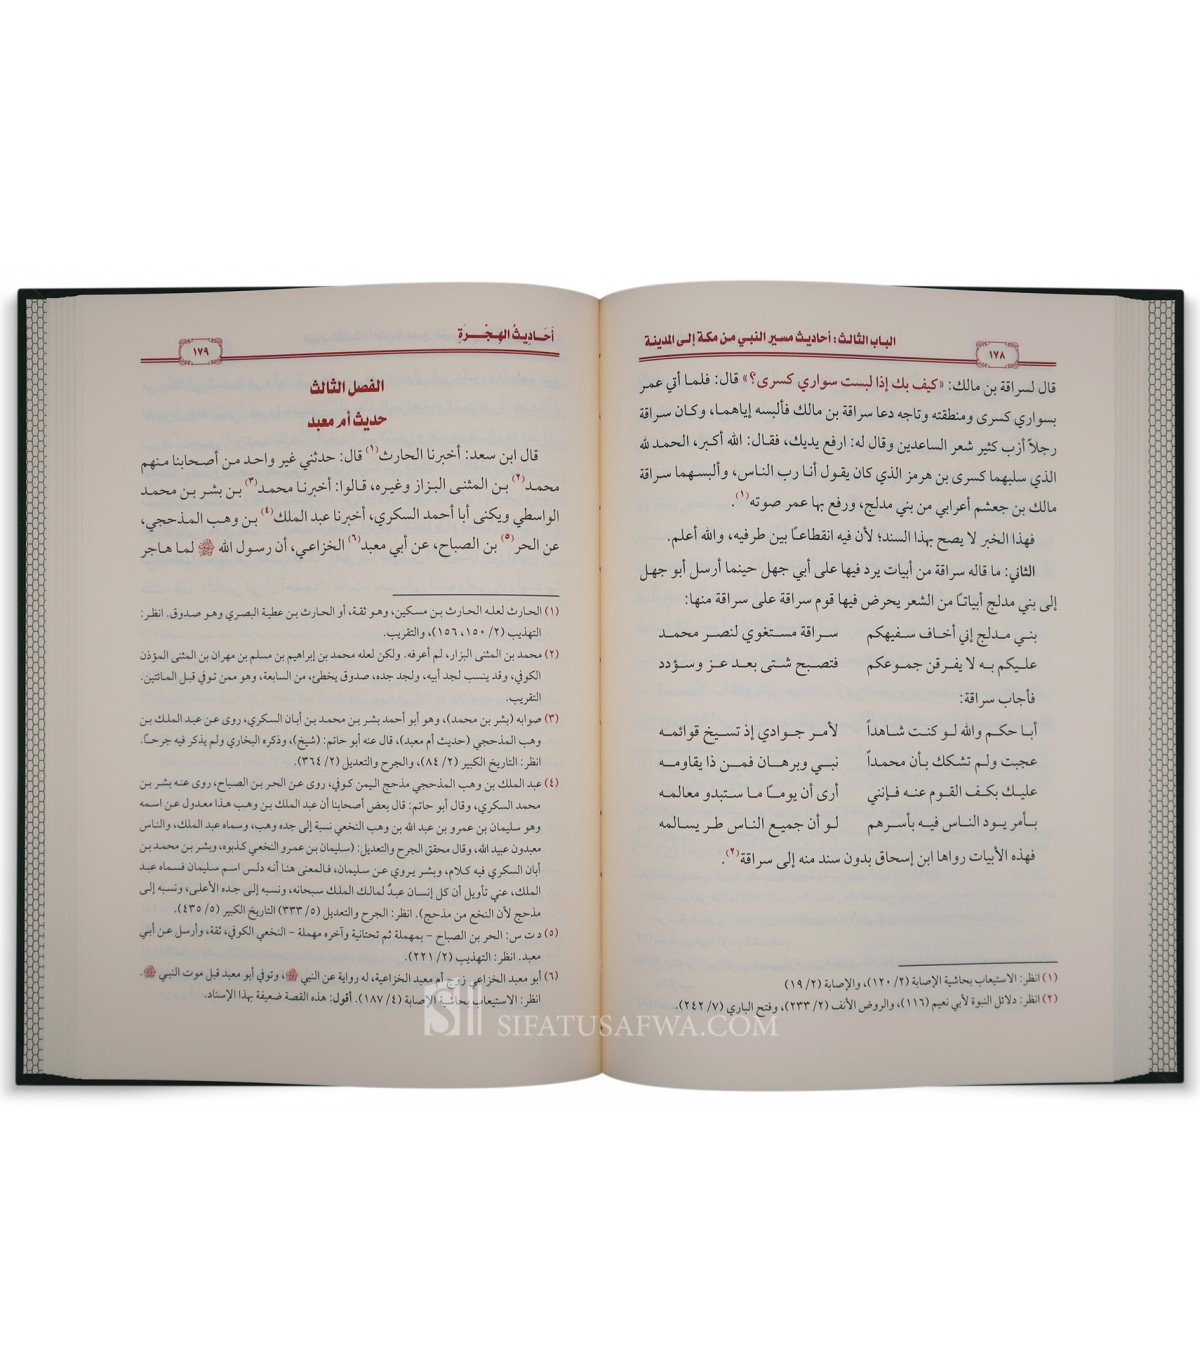 الباب الثالث: أحاديث مسير النبي من مكة إلى المدينة
١٧٨
قال لسراقة بن مالك: «كيف بك إذا لبست سواري كسرى؟» قال: فلما أتي عمر
بسواري كسرى ومنطقته وتاجه دعا سراقة بن مالك فألبسه إياهما، وكان سراقة
رجلاً أزب كثير شعر الساعدين وقال له: ارفع يديك، فقال: الله أكبر، الحمد لله
الذي سلبهما كسرى بن هرمز الذي كان يقول أنا رب الناس، وألبسهما سراقة
مالك بن جعشم أعرابي من بني مدلج، ورفع بها عمر صوته(١).
فهذا الخبر لا يصح بهذا السند؛ لأن فيه انقطاعًا بين طرفيه، والله أعلم.
الثاني: ما قاله سراقة من أبيات يرد فيها على أبي جهل حينما أرسل أبو جهل
إلى بني مدلج أبياتًا من الشعر يحرض فيها قوم سراقة على سراقة منها:
بني مدلج إني أخاف سفيهكم سراقة مستغوي لنصر محمد
عليكم به لا يفرقن جموعكم فتصبح شتى بعد عز وسؤدد
فأجاب سراقة:
أبا حكم والله لو كنت شاهداً لأمر جوادي إذ تسيخ قوائمه
عجبت ولم تشكك بأن محمداً نبي وبرهان فمن ذا يقاومه
عليك بكف القوم عنه فإنني أرى أن يومًا ما ستبدو معالمه
بأمر يود الناس فيه بأسرهم لو أن جميع الناس طر يسالمه
فهذه الأبيات رواها ابن إسحاق بدون سند منه إلى سراقة(٢).
(١) انظر: الاستيعاب بحاشية الإصابة (٢/ ١٢٠)، والإصابة (٢/ ١٩)
(٢) انظر: دلائل النبوة لأبي نعيم (١١٦)، والروض الأنف (٢/ ٢٣٣)، وفتح الباري (٧/ ٢٤٢).
أحَاديثُ الهجْرَةِ
١٧٩
الفصل الثالث
حديث أم معبد
قال ابن سعد: أخبرنا الحارث(١) قال: حدثني غير واحد من أصحابنا منهم
محمد(٢) بن المثنى البزاز وغيره، قالوا: أخبرنا محمد(٣) بن بشر بن محمد
الواسطي ويكنى أبا أحمد السكري، أخبرنا عبد الملك(٤) بن وهب المذحجي،
عن الحر(٥) بن الصباح، عن أبي معبد(٦) الخزاعي، أن رسول الله ﷺ لما هاجر
(١) الحارث لعله الحارث بن مسكين، وهو ثقة، أو الحارث بن عطية البصري وهو صدوق. انظر:
التهذيب (٢/ ١٥٠، ١٥٦)، والتقريب.
(٢) محمد بن المثنى البزار، لم أعرفه. ولكن لعله محمد بن إبراهيم بن مسلم بن مهران بن المثنى المؤذن
الكوفي، وقد ينسب لجد أبيه، ولجد جده، صدوق يخطئ، من السابعة، وهو ممن توفي قبل المائتين.
التقريب.
(٣) صوابه (بشر بن محمد)، وهو أبو أحمد بشر بن محمد بن أبان السكري، روى عن عبد الملك بن
وهب المذحجي (حديث أم معبد)، قال عنه أبو حاتم: (شيخ)، وذكره البخاري ولم يذكر فيه جرحًا.
انظر: التاريخ الكبير (٢/ ٨٤)، والجرح والتعديل (٢/ ٣٦٤).
(٤) عبد الملك بن وهب المذحجي مذحج اليمن كوفي، روى عن الحر بن الصباح، روى عنه بشر بن
محمد السكري، وقال أبو حاتم: قال بعض أصحابنا أن عبد الملك بن وهب هذا معدول عن اسمه
وهو سليمان بن عمرو بن عبد الله بن وهب النخعي نسبة إلى جده وهب، وسماه عبد الملك، والناس
معبدون عبيد الله، وقال محقق الجرح والتعديل: (سليمان بن عمرو النخعي كذبوه، وبشر بن محمد بن
أبان السكري فيه كلام، وبشر يروي عن سليمان، فالمعنى هنا أنه دلس اسم سليمان فسماه عبد
الملك، عني تأويل أن كل إنسان عبدٌ لمالك الملك سبحانه، ونسبه إلى جده الأعلى، ونسبه إلى
مذحج لأن النخع من مذحج). انظر: الجرح والتعديل (٥/ ٣٣٣) التاريخ الكبير (٥/ ٤٣٥).
(٥) د ت س: الحر بن الصباح – بمهملة ثم تحتانية وآخره مهملة – النخعي الكوفي، ثقة، وأرسل عن أبي
معبد. انظر: التهذيب (٢/ ٢٢١).
(٦) أبو معبد الخزاعي زوج أم معبد الخزاعية، له رواية عن النبي ﷺ، وتوفي أبو معبد قبل موت النبي ﷺ.
انظر: الاستيعاب بحاشية الإصابة (٤/ ١٨٧). أقول: هذه القصة ضعيفة بهذا الإسناد.
SIFATUSAFWA.COM